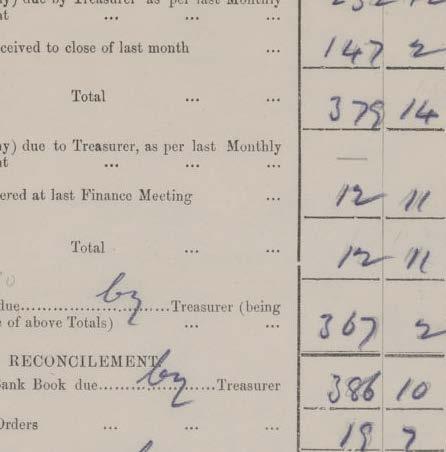 y) due by Treasurer as per last Monthly 232 12
t ... ... ...
ceived to close of last month ... 147 2
Total ... ... 379 14
y) due to Treasurer, as per last Monthly
t ... ... ... —
ered at last Finance Meeting ... 12 11
Total ... ... 12 11
due........by........Treasurer (being
e of above Totals) ... ... 367 2
RECONCILEMENT
ank Book due........by........Treasurer 386 10
Orders ... ... ... 19 7